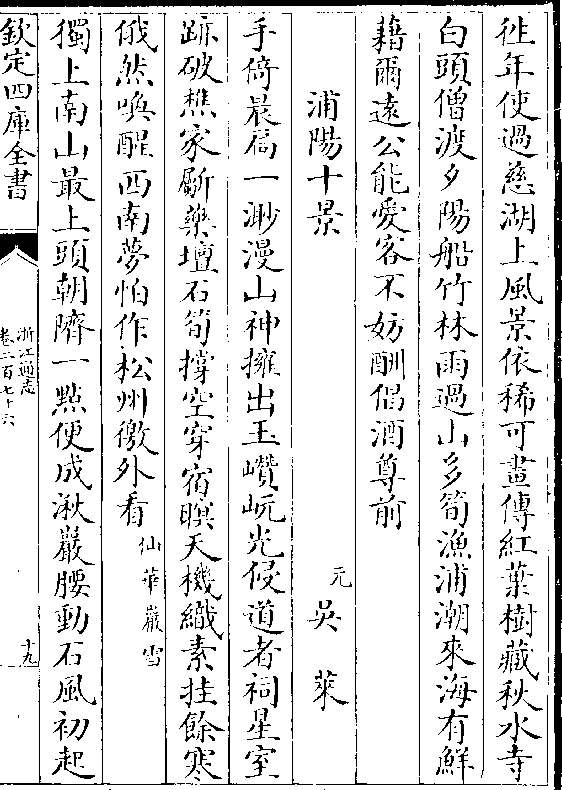 往年使過慈湖上風景依稀可畫傳紅葉樹藏秋水寺
白頭僧渡夕陽船竹林雨過山多筍漁浦潮來海有鮮
藉爾遠公能愛客不妨酬倡酒尊前
浦陽十景
元 吳萊
手倚晨扃一渺漫山神擁出玉巑岏光侵道者祠星室
跡破樵家斸藥壇石筍撐空穿宿暝天機織素挂餘寒
俄然喚醒西南夢怕作松州徼外看仙華巖雪
獨上南山最上頭朝隮一點便成湫巖腰動石風初起
欽定四庫全書
浙江通志
卷二百七十六
十九